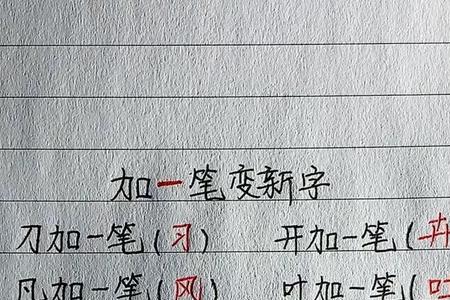 加一笔变新字
刁加一笔(习) 开加一笔(卉
凡加一笔(风) 叶加一笔(